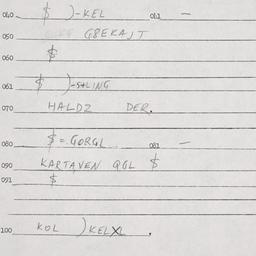 040 $ )-KEL 042 -
050 G8EKAJT
060 $
061 $ )-S+LING
070 HALDZ DER.
080 $ = GORGL 081 -
090 KARTAVEN QGL $
091 $
100 KOL ) KELXL .